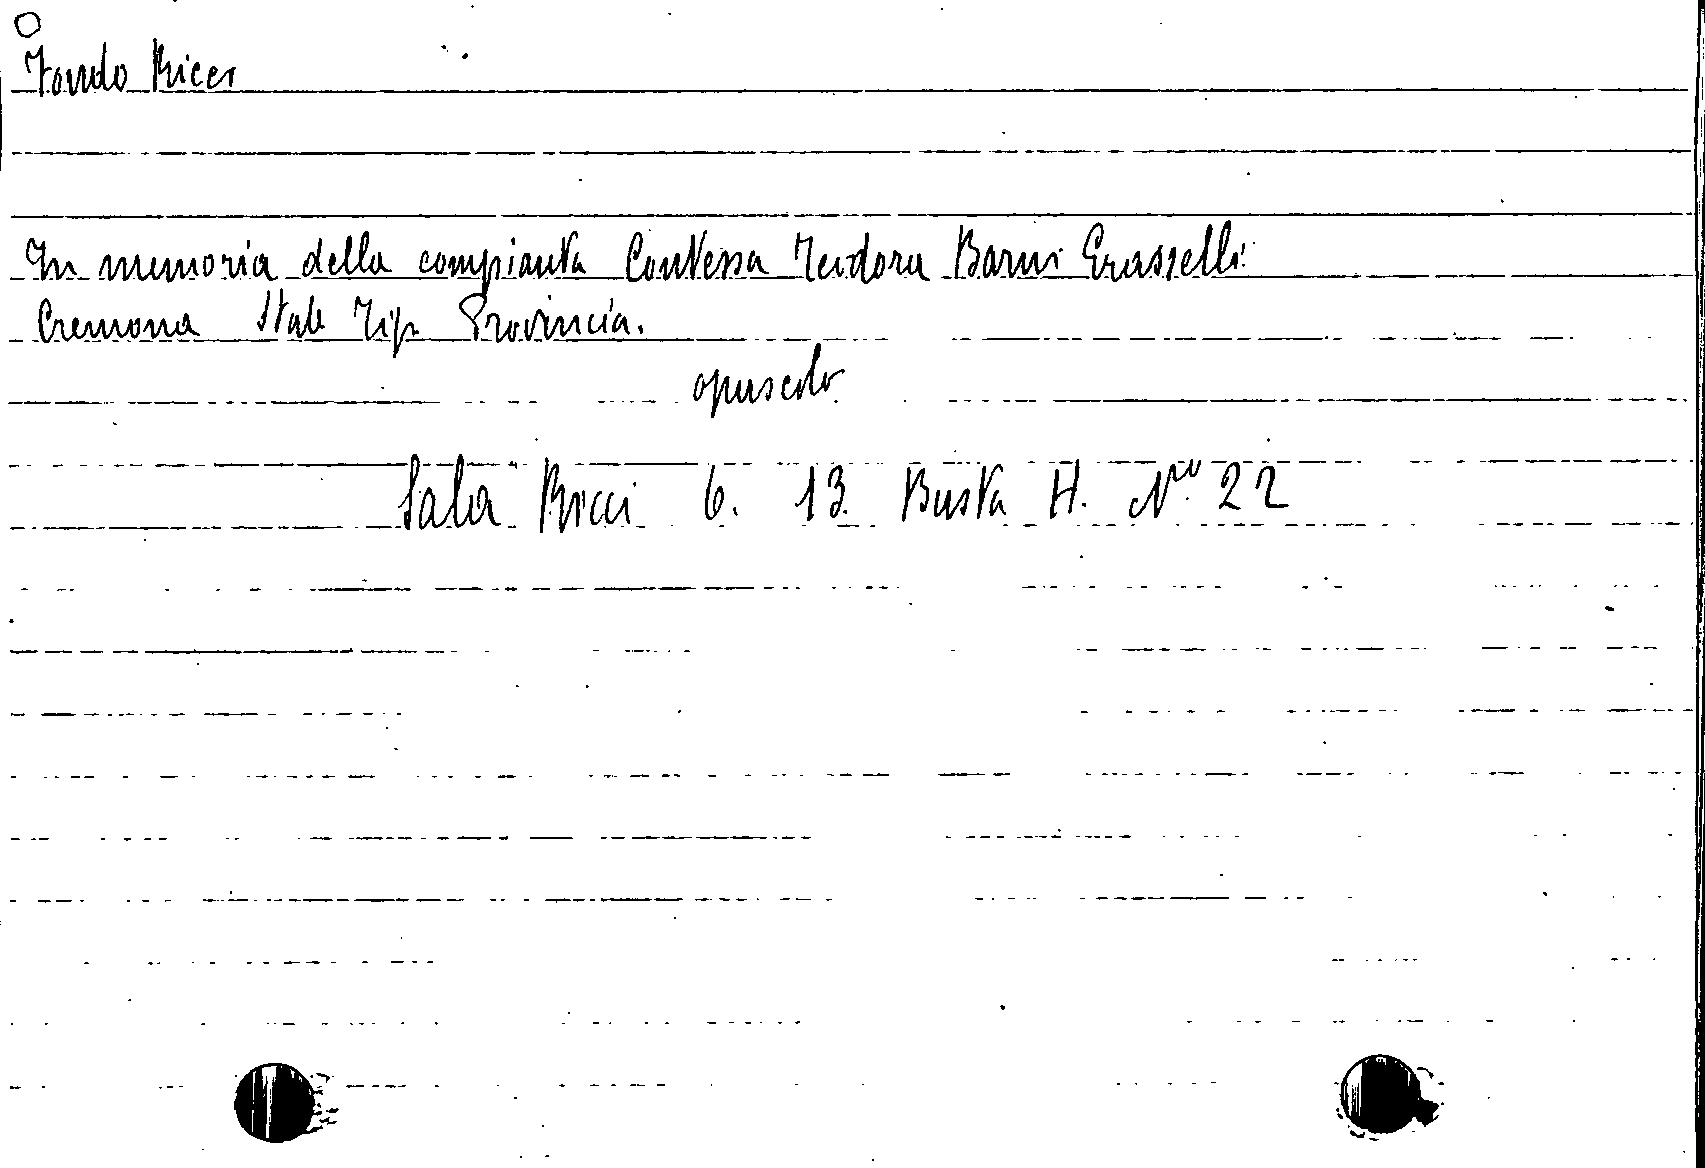 Fondo Ricci
In memoria della compianta Contessa Teodora Barni Grasselli
Cremona Stab Tip. Provincia.
opuscolo
Sala Ricci 6. 13. Busta H. No 22